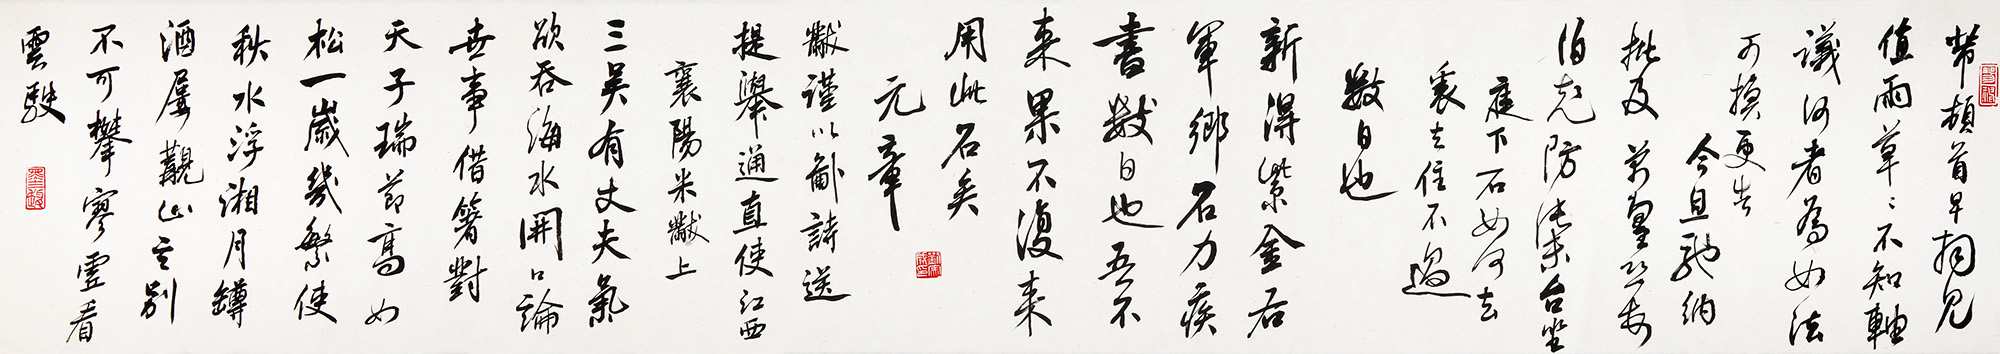 芾頓首早拘見
值雨草〻不知軸
議何者為如法
可換更告
今且馳納
批及
伯充防禦台坐
庭下石如何去
裏去住不過
數日也
新得紫金右
軍鄉石力疾
書數日也吾不
来果不復来
用此石矣
元章
黻謹以鄙詩送
提舉通直使江西
襄陽米黻上
三吳有丈夫氣
欲吞海水開口論
世事借箸對
天子瑞節高如
松一歲幾繁使
秋水浮湘月鐏
酒屢觀山言別
不可攀寥虛看
雲駛